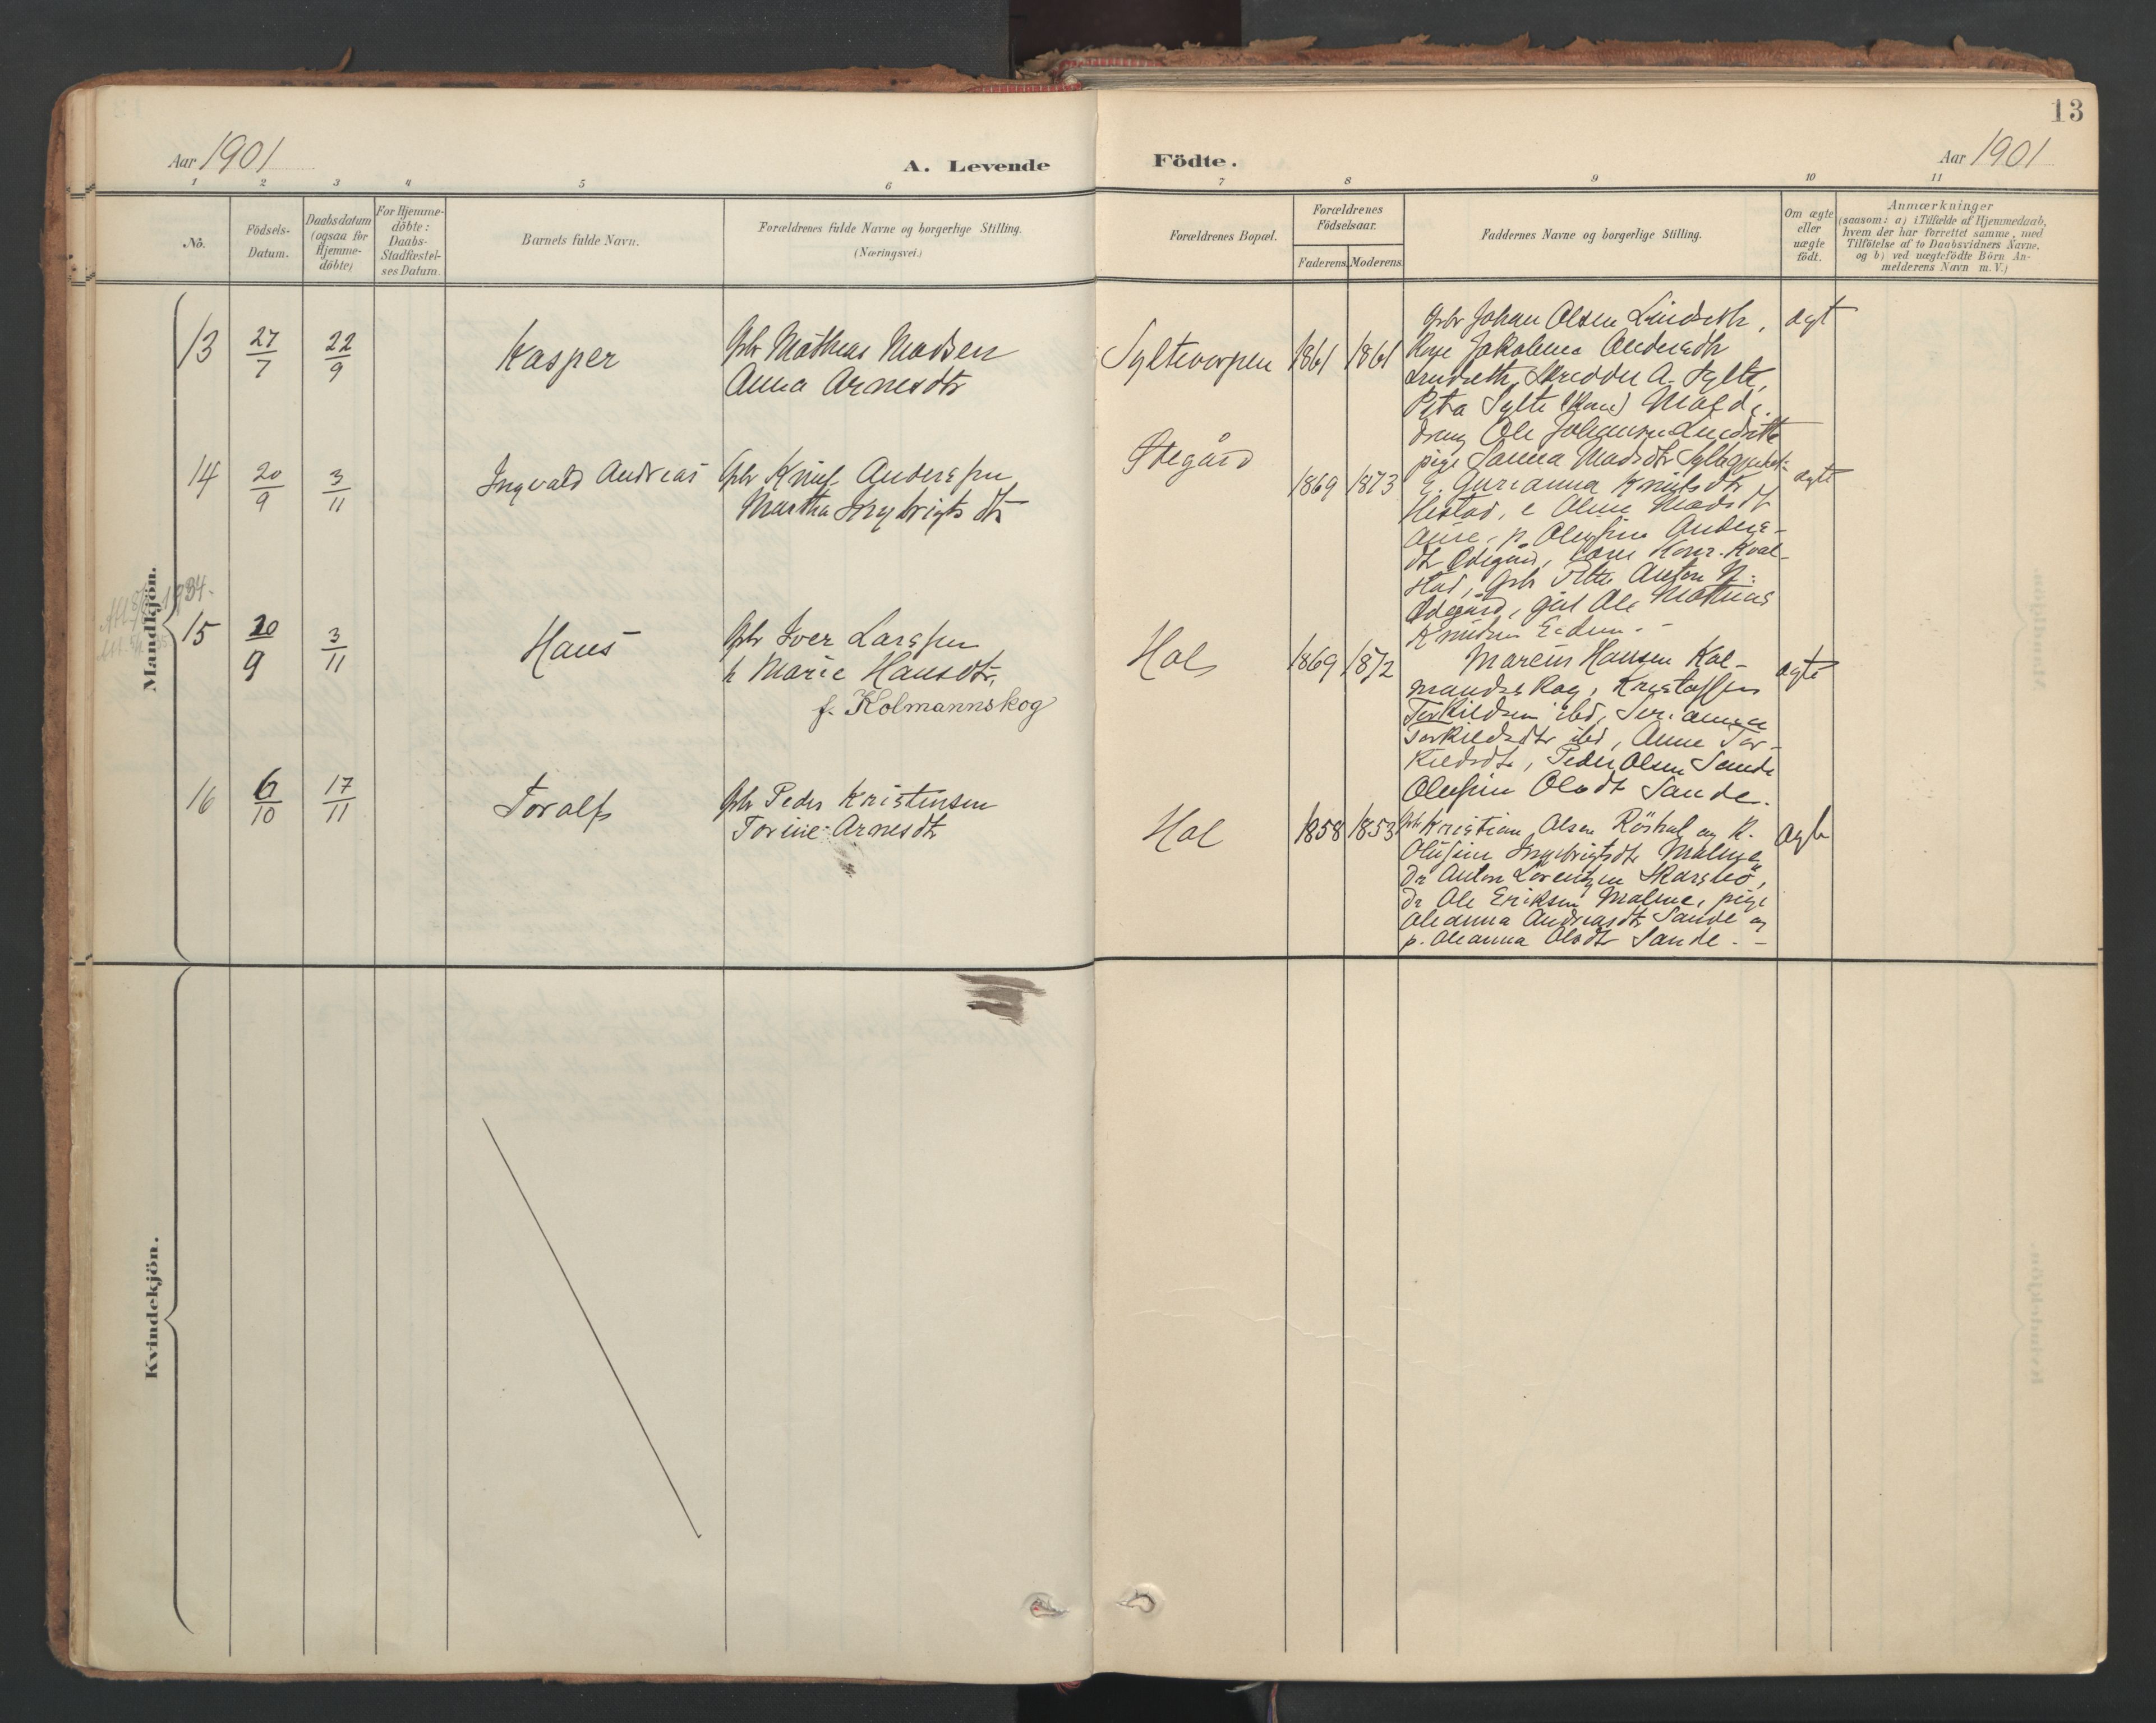 13
Aar 1901
A. Levende Födte.
Aar 1901
1 2 3 4 5 6 7 8 9 10 11
No.
Födsels-
Datum.
Daabsdatum
(ogsaa for
Hjemme-
döbte)
For Hjemme-
döbte:
Daabs-
Stadfæstel-
ses Datum.
Barnets fulde Navn.
Forældrenes fulde Navne og borgerlige Stilling.
(Næringsvei.)
Forældrenes Bopæl.
Forældrenes
Födselsaar.
Faderens. Moderens.
Faddernes Navne og borgerlige Stilling.
Om ægte
eller
uægte
födt.
Anmærkninger
(saasom: a) i Tilfælde af Hjemmedaab,
hvem der har forrettet samme, med
Tilföielse af to Daabsvidners Navne.
og b) ved uægtefödte Börn An-
melderens Navn m. V.)
Mandkjön.
13 27/7 22/9 Kasper
Gbr Mathias Madsen
Anna Arnesdtr
Syltevorpen 1861 1861
Gbr Johan Olsen Lindseth,
Kone Jakobine Andersdtr
Lindseth, Skredder A. Sylte,
Petra Sylte (Kone) Malde.
dreng Ole Johansen Lindseth
pige Sanna Madsdtr
ægt
14 20/9 3/11 Ingvald Andreas
Gbr Knut Anderssen
Martha Ingebrigtsdtr
Ødegård 1869 1873
E. Gurianna Knutsdtr
Hestad, e Oline Madsdt
Aure, p. Olufine Anders-
dtr Ødegård,
stad, Gbr Petter Anton N.
Ødegård, Ole Mathias
Knudsen Eidem. -
ægte
1934.
15 20/9 3/11 Hans
Gbr Iver Larssen
h Marie Hansdtr,
f. Kolmannskog
Hol 1869 1872
Marcus Hansen Kol-
mandsskog, Kristoffer
Terkildsen ibd, Serianna
Terkildsdtr ibd, Anne Ter-
kildsdtr, Peder Olsen Sande
Olufine Olsdt Sande.
ægte
16 6/10 17/11 Toralf
Gbr Peder Kristensen
Torine Arnesdtr
Hol 1858 1853
Gbr Kristian Olsen Röshol og K.
Olufine Ingebrigtsdtr Malme,
Dr Anton Lorentzen Skarshö,
Dr Ole Eriksen Malme, pige
Oleanna Andreasdtr Sande og
p. Oleanna Olsdtr Sande. -
ægte
Kvindekjön.